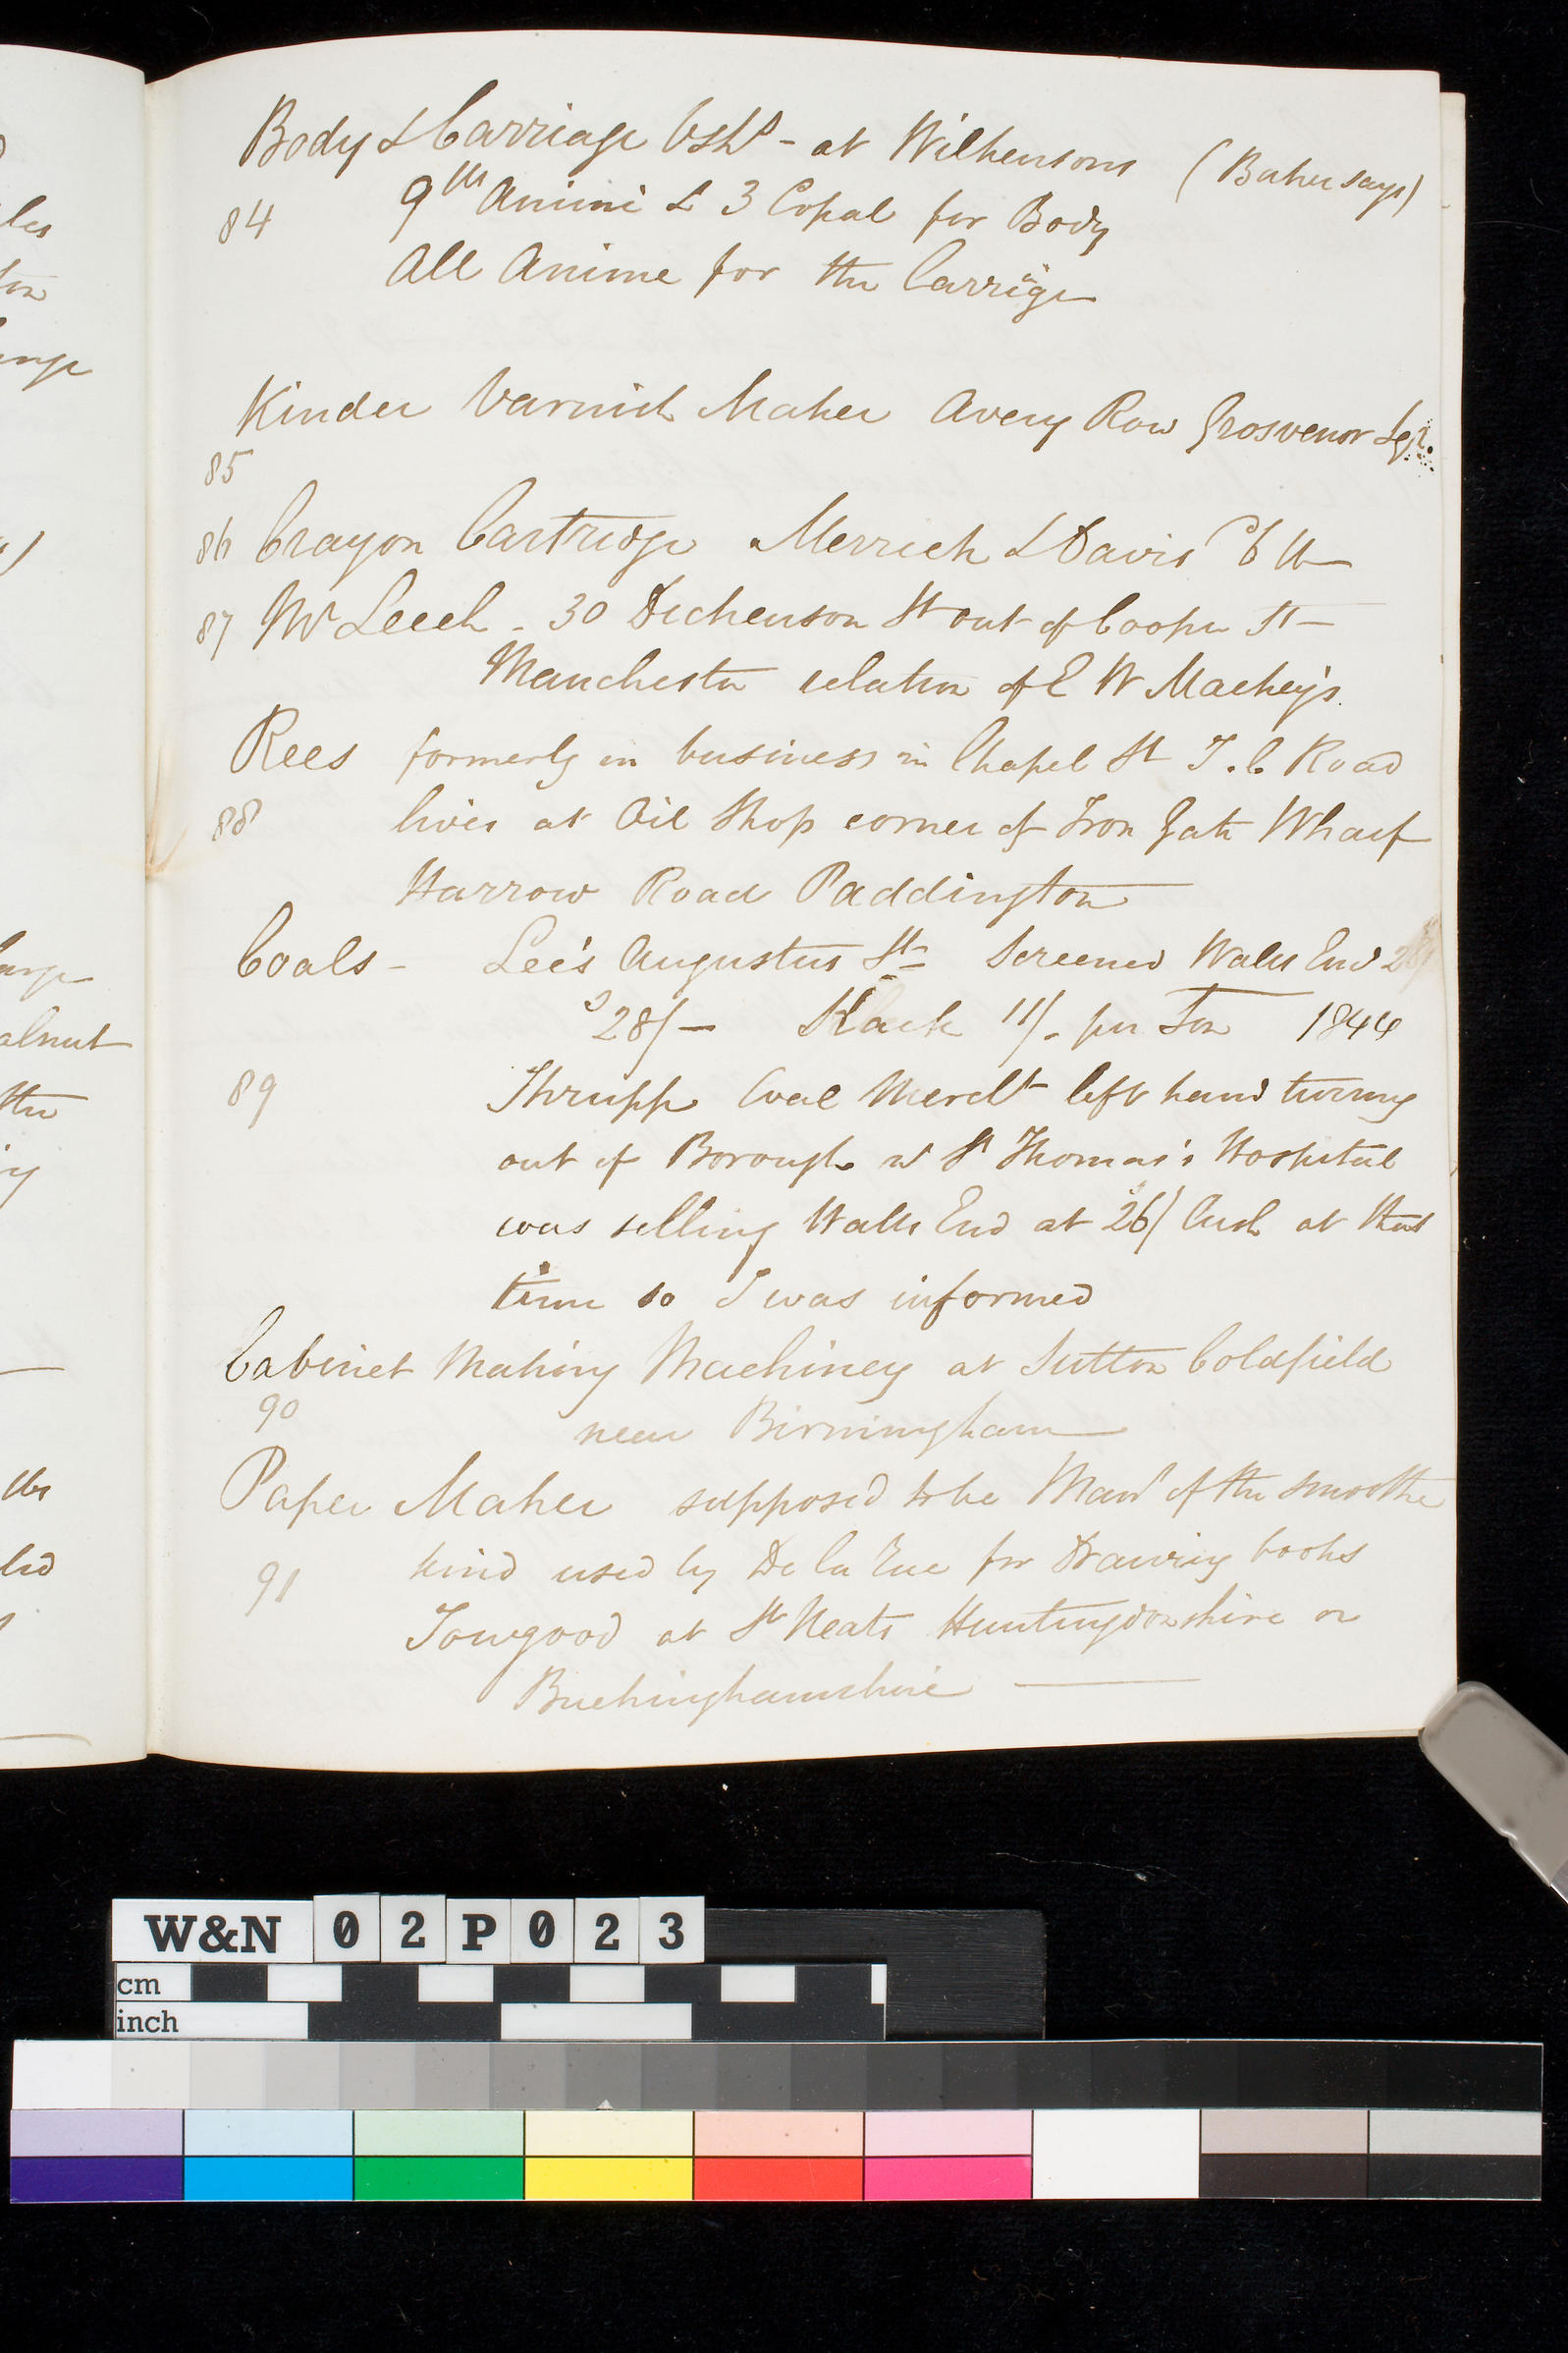 Body & Carriage Vshs - at Wilkensons (Baker says)
84 9lbs Anime & 3 Copal for Body
All Anime for the Carrige
Kinder Varnish Maker Avery Row Grosvenor Sqr.
85
86 Crayon Cartridge Merrick & Davis
87 Mr Leech - 30 Dickenson St out of Cooper St -
Manchester relation of E W Mackey's
Rees formerly in business in Chapel St T. C. Road
88 lives at Oil Shop corner of Iron Gate Wharf
Harrow Road Paddington
Coals - Lee's Augustus St Screened Walls End
28/- Slack 11/- per Ton 1844
89 Thrupp Coal Mercht left hand turning
out of Borough at St Thomas's Hospital
was selling Walls End at 26/ Cash at that
time so I was informed
Cabinet Making Machinery at Sutton Coldfield
90 near Birmingham
Paper Maker supposed to be Manr of the smoothe
91 kind used by De la Rue for Drawing books
Towgood at St Neats Huntingdonshire or
Buckinghamshire
W&N 02P023
cm
inch